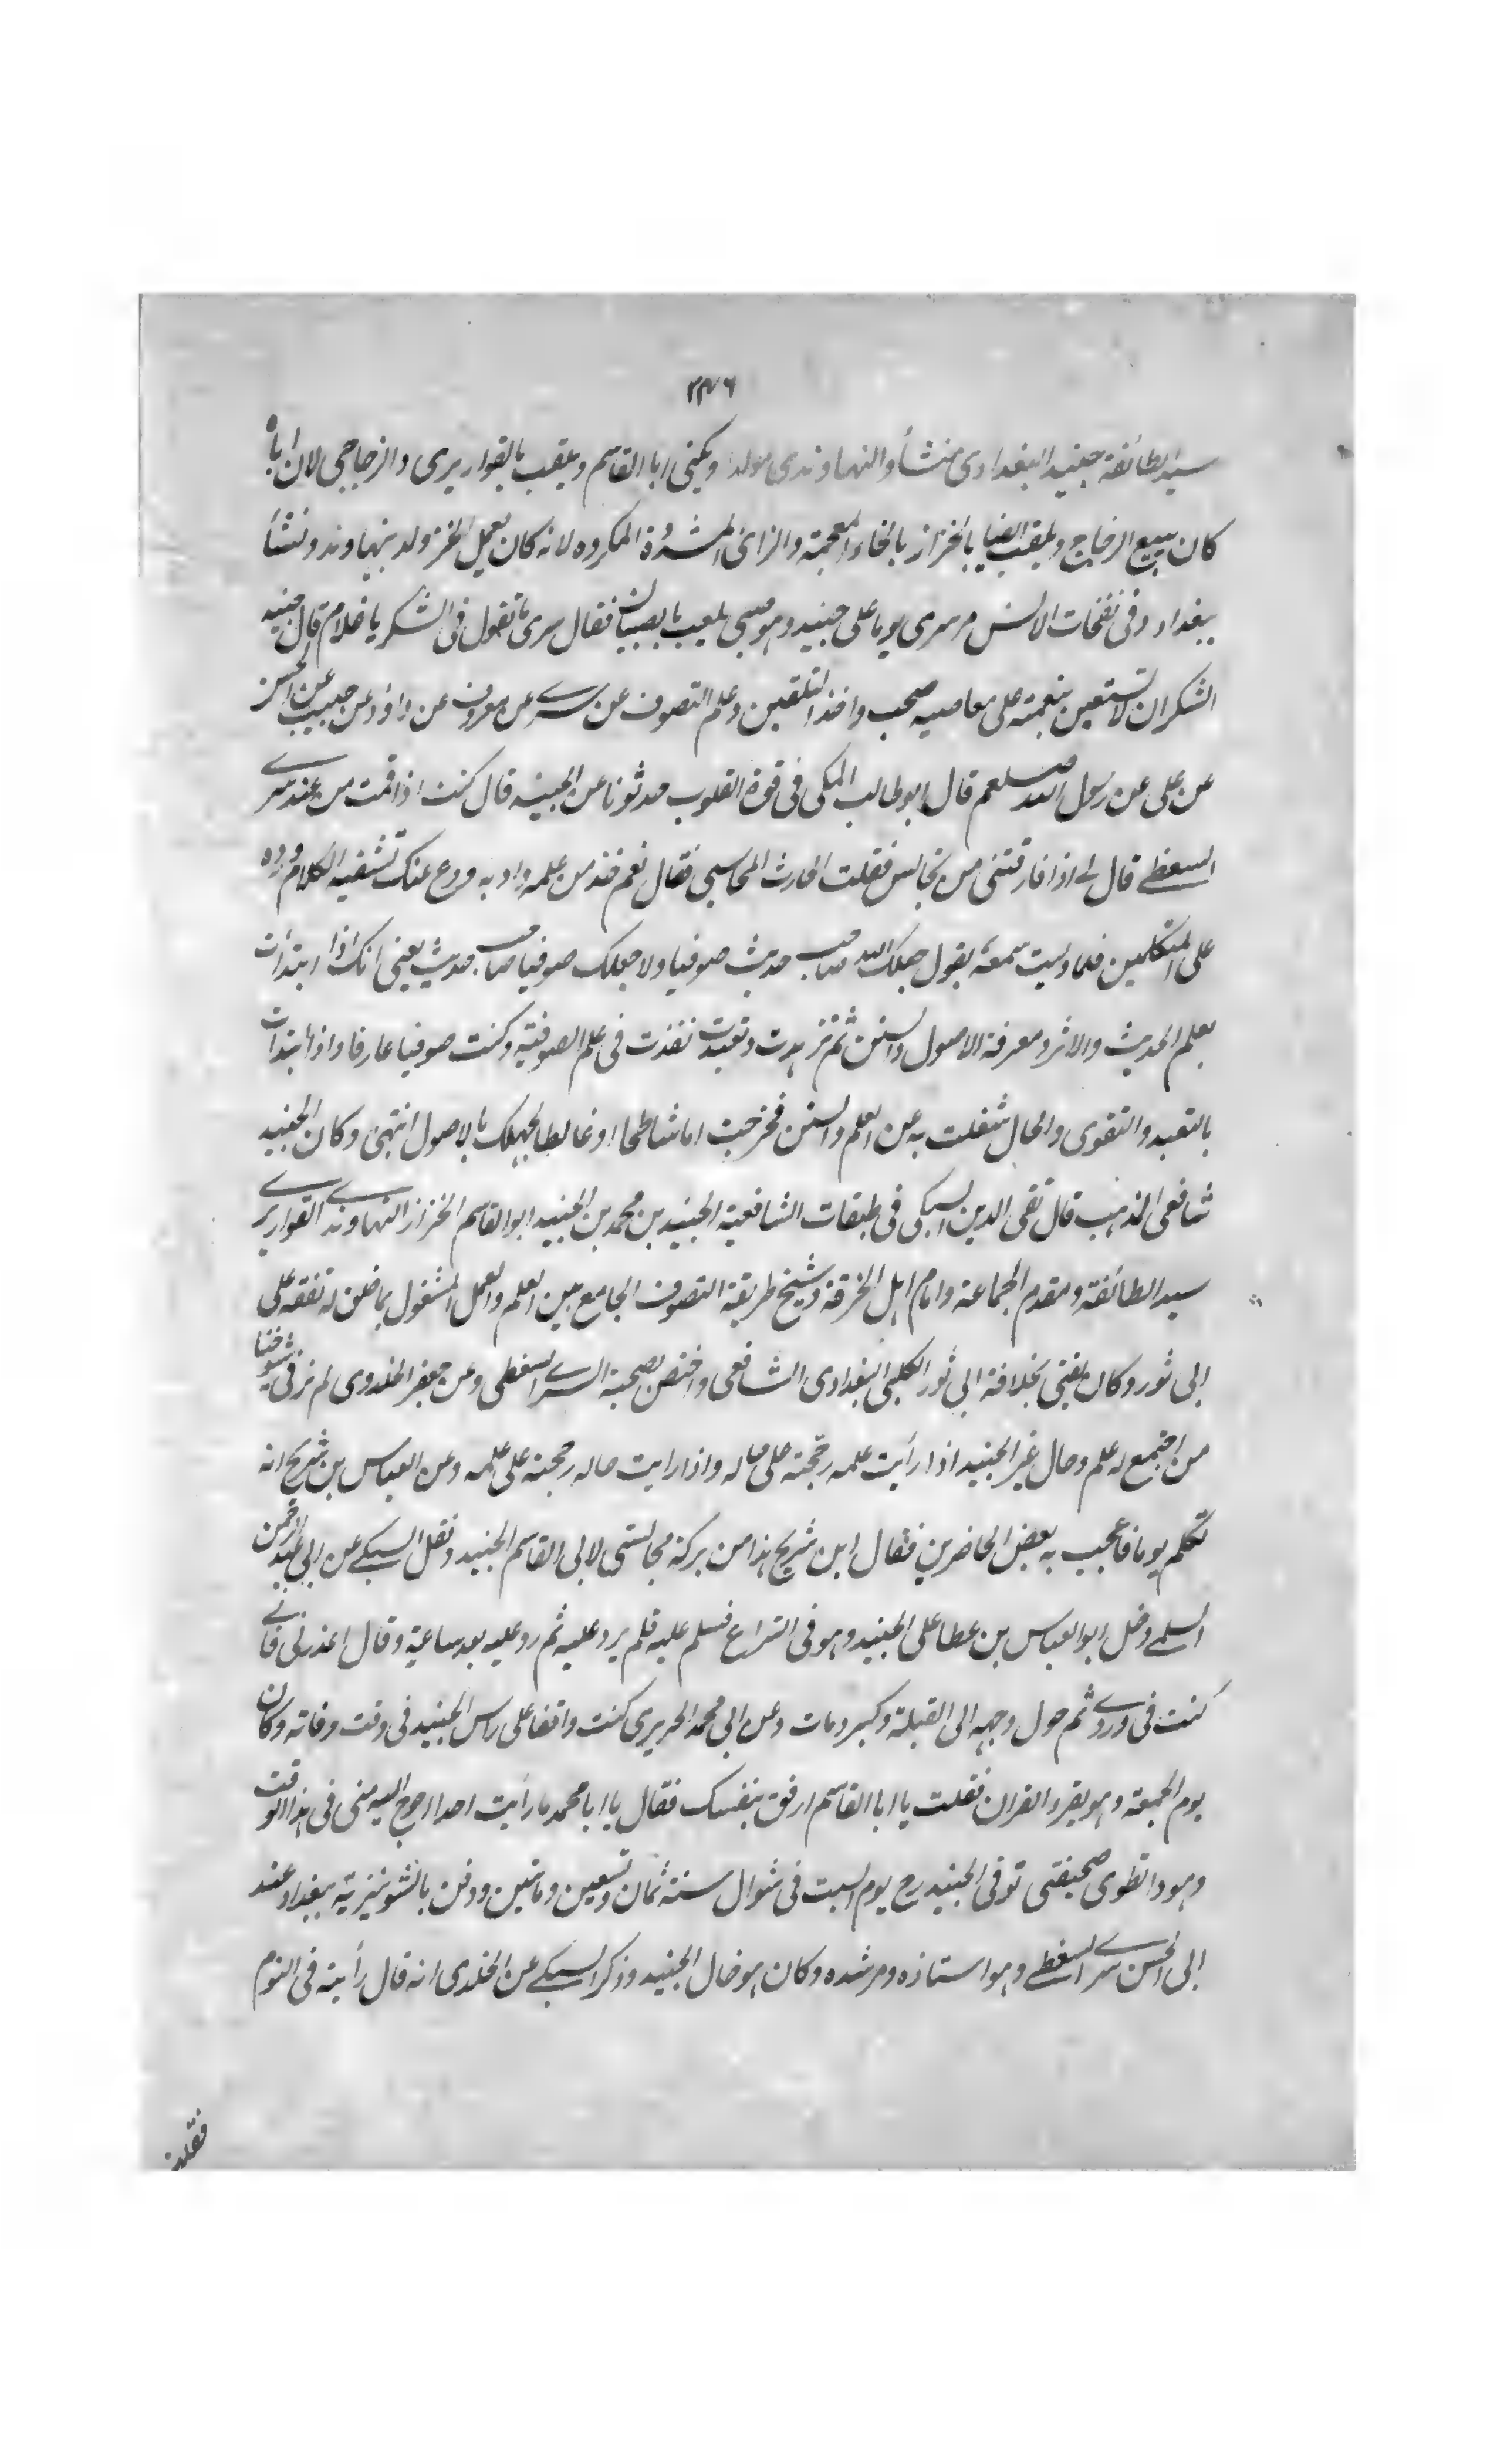 ٢٤٦
سيد الطائفة جنيد البغدادى منشأ والنهاوندى مولدا ويكنى ابا القاسم ويلقب بالقواريرى والزجاجى لان اباه
كان يبيع الزجاج ويلقب ايضا بالخزاز بالخاء المعجمة والزائ المشددة المكروه لانه كان يعمل الخز ولد بنهاوند ونشأ
ببغداد وفى نفحات الانس مر سرى يوما على جنيد وهو صبى يلعب بالصبيان فقال سرى ما تقول فى الشكر يا غلام قال جنيد
الشكر ان لا تستعين بنعمته على معاصيه صحب واخذ التلقين وعلم التصوف عن سرے عن معروف عن داؤد عن حبيب عن الحسن
عن على عن رسول الله صلعم قال ابو طالب المكى فى قوة القلوب حدثونا عن الجنيد قال كنت اذا قمت من عند سرے
السقطے قال لے اذا فارقتنى من تجالس فقلت الحارث المحاسبى فقال نعم خذ من علمه وادبه ودع عنك تشقيه الكلام ورده
على المتكلمين فلما وليت سمعته يقول جعلك الله صاحب حديث صوفيا ولا جعلك صوفيا صاحب حديث يعنى انك اذا ابتدأت
بعلم الحديث والاثر ومعرفة الاصول والسنن ثم تزهدت وتعبدت نفذت فى علم الصوفية وكنت صوفيا عارفا واذا ابتدأت
بالتعبد والتقوى والحال شغلت به عن العلم والسنن فخرجت اما شاطحا او غالطا لجهلك بالاصول انتهى وكان الجنيد
شافعى المذهب قال تقى الدين السبكى فى طبقات الشافعية الجنيد بن محمد بن الجنيد ابو القاسم الخزاز النهاوندے القواريرے
سيد الطائفة ومقدم الجماعة وامام اهل الخرقة وشيخ طريقة التصوف الجامع بين العلم والعمل المشغول بما خلق له تفقه على
ابى ثور وكان يفتى بخلافة ابى ثور الكلبى البغدادى الشافعى واختص بصحبة السرے السقطى وعن جعفر الخلدوى لم نر فى شيوخنا
من اجتمع له علم وحال غير الجنيد اذا رأيت علمه رجحته على حاله واذا رايت حاله رجحته على علمه وعن العباس بن شريح انه
تكلم يوما فاعجب به بعض الحاضرين فقال ابن شريح هذا من بركة مجالستى لابى القاسم الجنيد ونقل السبكے عن ابى عبد الرحمن
السلمے دخل ابو العباس بن عطا على الجنيد وهو فى النزاع فسلم عليه فلم يرد عليه ثم رد عليه بعد ساعة وقال اعذرنى فانے
كنت فى وردے ثم حول وجهه الى القبلة وكبر ومات وعن ابى محمد الحريرى كنت واقفا على راس الجنيد فى وقت وفاته وكان
يوم الجمعة وهو يقرء القران فقلت يا ابا القاسم ارفق بنفسك فقال يا ابا محمد ما رأيت احدا احوج اليه منى فى هذا الوقت
وهو ذا تطوى صحيفتى توفى الجنيد رح يوم السبت فى شوال سنة ثمان وتسعين ومائتين ودفن بالشونيزية ببغداد عند
ابى الحسن سرے السقطے وهو استاذه ومرشده وكان هو خال الجنيد وذكر السبكے عن الخلدى انه قال رأيته فى النوم
فقلت